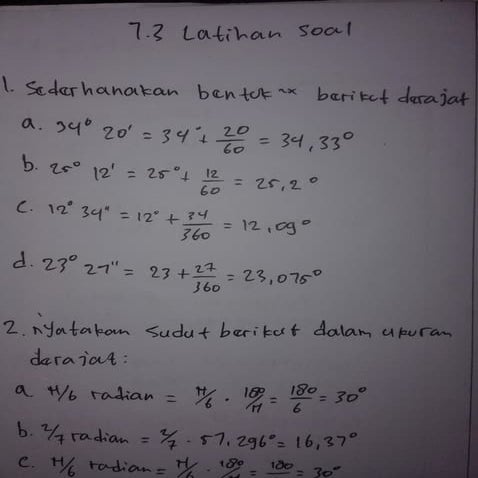 7.3 Latihan soal
1. Sederhanakan bentuk berikut derajat
a. 34° 20' = 34° + 20/60 = 34,33°
b. 25° 12' = 25° + 12/60 = 25,2°
c. 12° 34" = 12° + 34/360 = 12,09°
d. 23° 27" = 23 + 27/360 = 23,075°
2. Nyatakan sudut berikut dalam ukuran
derajat:
a. π/6 radian = π/6 . 180/π = 180/6 = 30°
b. 2/7 radian = 2/7 . 57,296° = 16,37°
c. π/6 radian = π/6 . 180/π = 180 = 30°